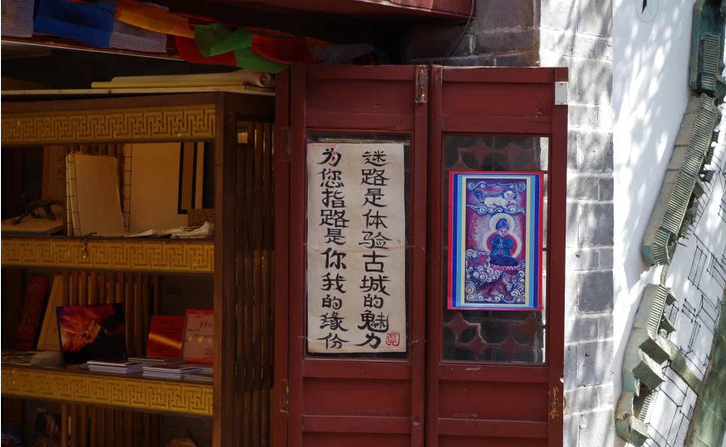 迷路是体验古城的魅力
为您指路是你我的缘份